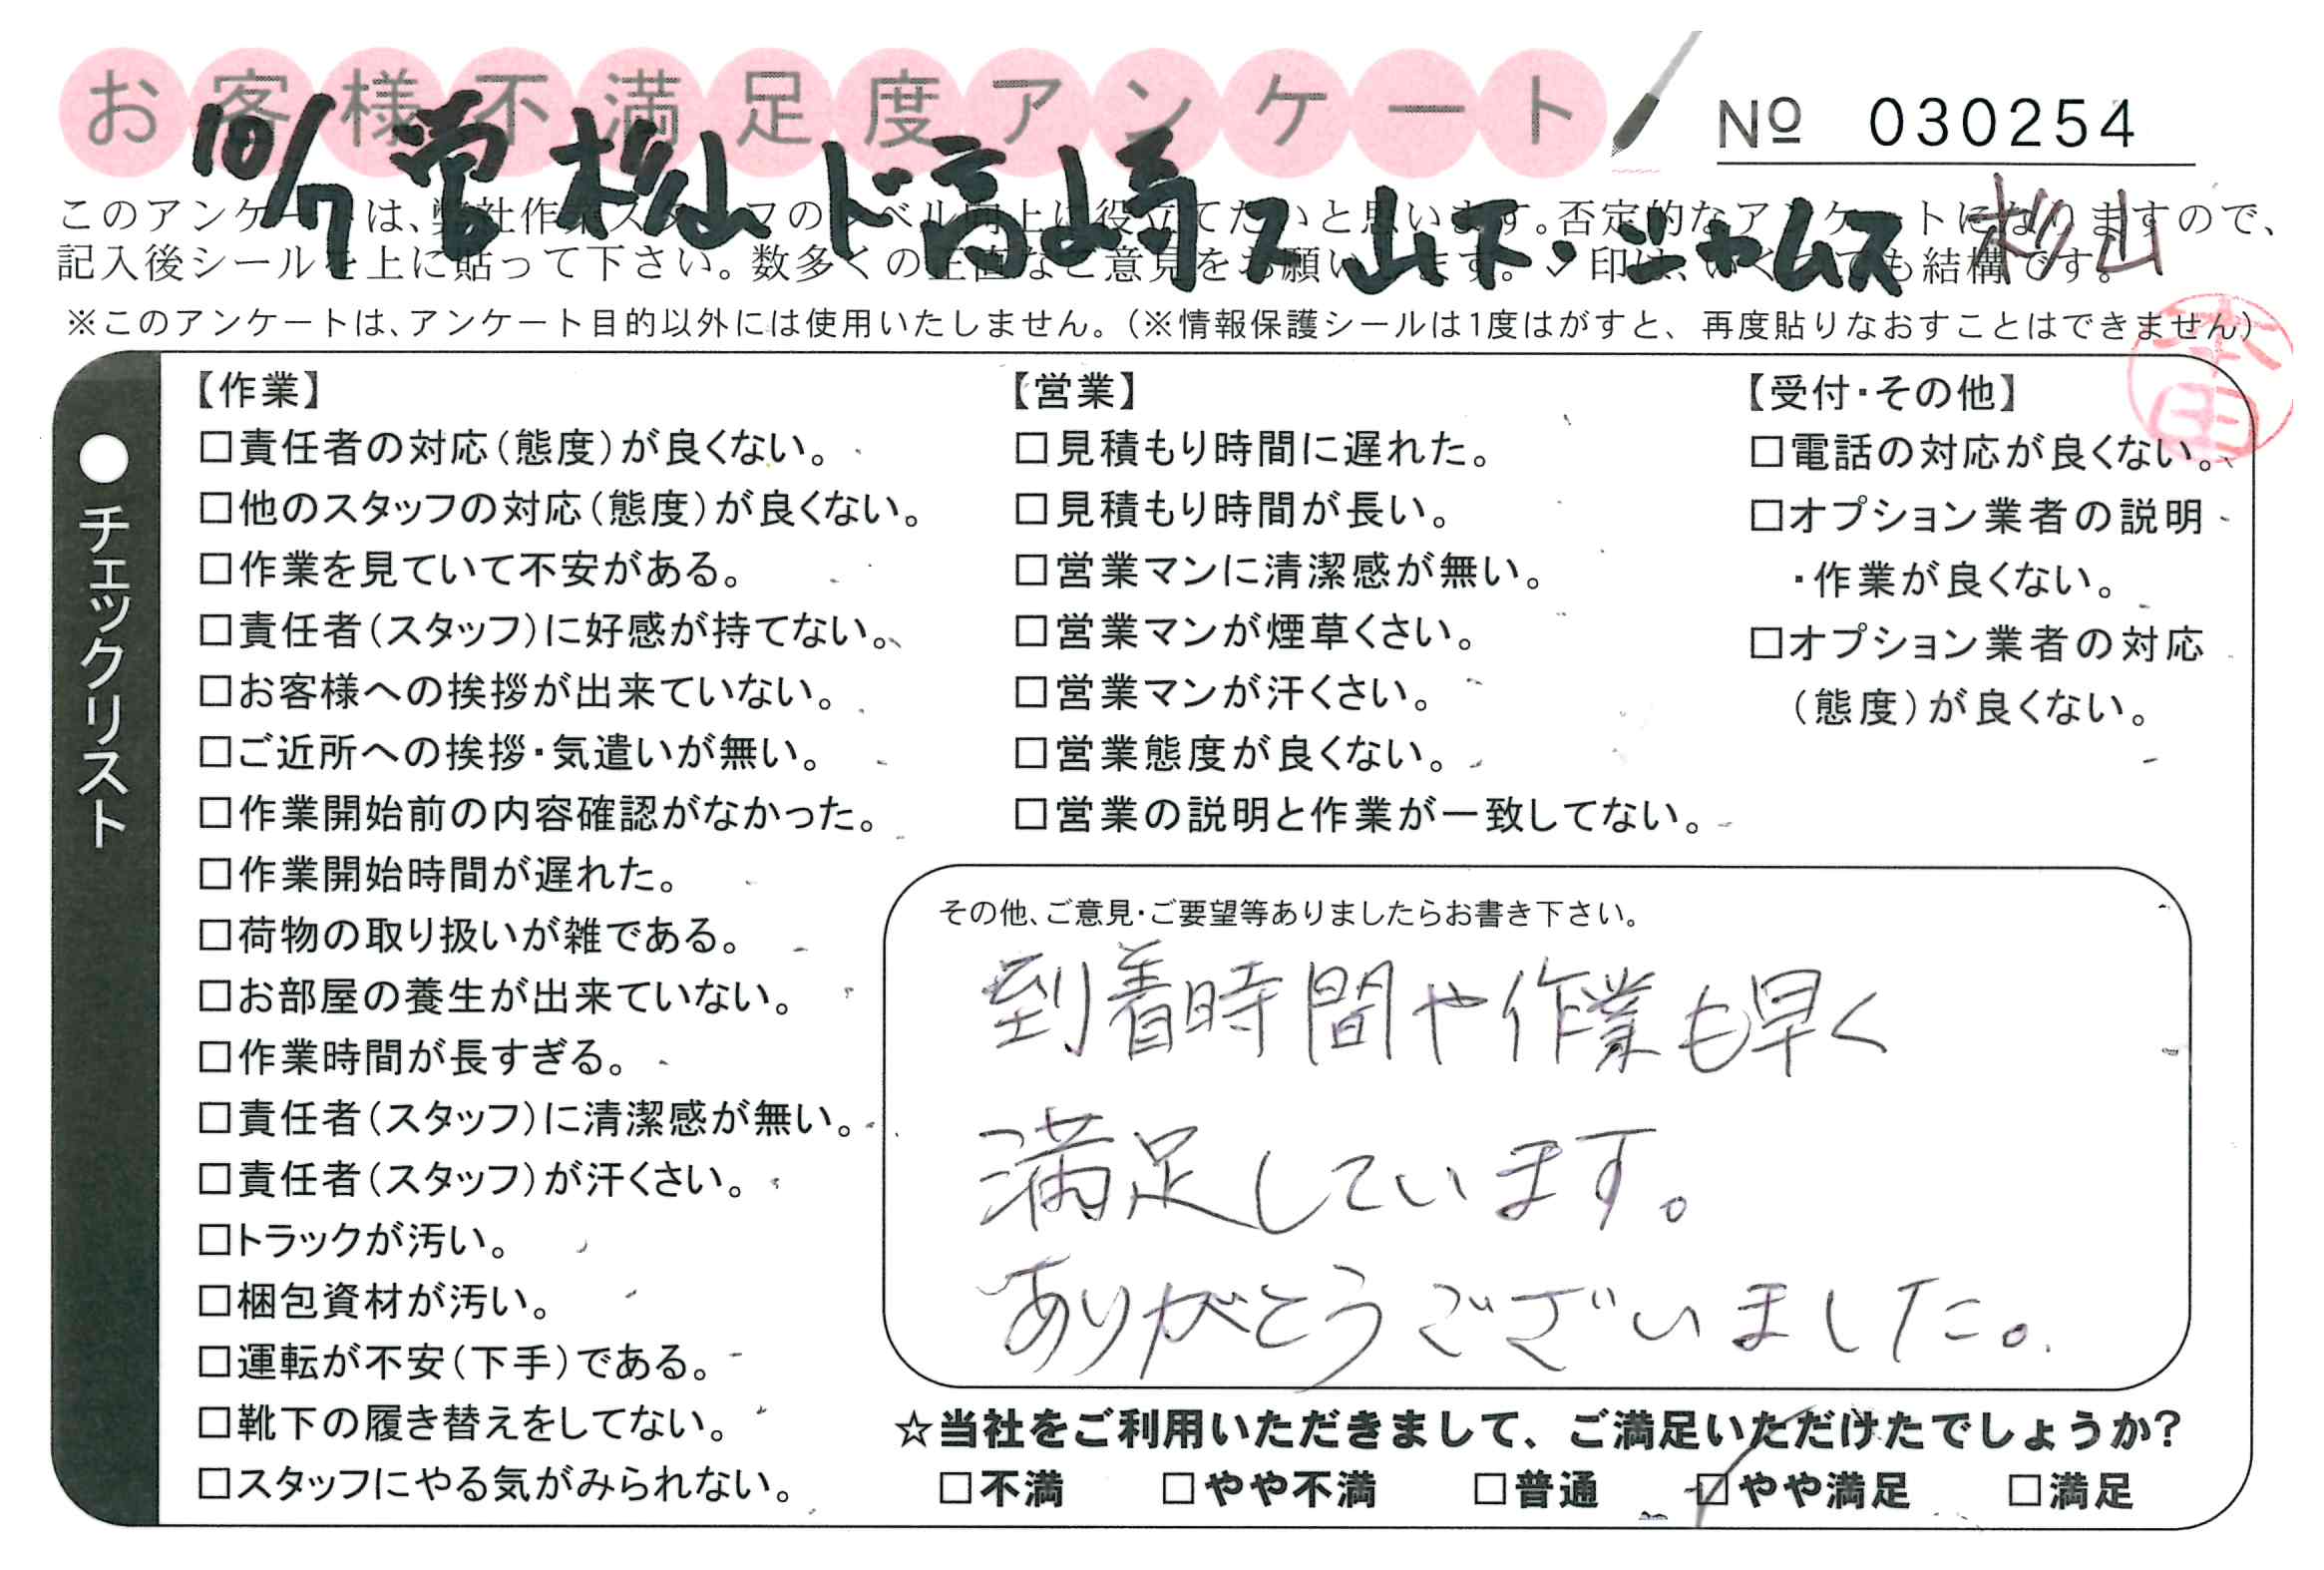 お客様不満足度アンケート
№ 030254
10/7 営 杉山 ド高崎 ス 山下・ジャムス 杉山
このアンケートは、弊社作業スタッフのレベル向上に役立てたいと思います。否定的なアンケートになりますので、
記入後シールを上に貼って下さい。数多くの正直なご意見をお願いします。✓印は、いくつでも結構です。
※このアンケートは、アンケート目的以外には使用いたしません。(※情報保護シールは1度はがすと、再度貼りなおすことはできません)
本田
●チェックリスト
【作業】
□責任者の対応(態度)が良くない。
□他のスタッフの対応(態度)が良くない。
□作業を見ていて不安がある。
□責任者(スタッフ)に好感が持てない。
□お客様への挨拶が出来ていない。
□ご近所への挨拶・気遣いが無い。
□作業開始前の内容確認がなかった。
□作業開始時間が遅れた。
□荷物の取り扱いが雑である。
□お部屋の養生が出来ていない。
□作業時間が長すぎる。
□責任者(スタッフ)に清潔感が無い。
□責任者(スタッフ)が汗くさい。
□トラックが汚い。
□梱包資材が汚い。
□運転が不安(下手)である。
□靴下の履き替えをしてない。
□スタッフにやる気がみられない。
【営業】
□見積もり時間に遅れた。
□見積もり時間が長い。
□営業マンに清潔感が無い。
□営業マンが煙草くさい。
□営業マンが汗くさい。
□営業態度が良くない。
□営業の説明と作業が一致してない。
【受付・その他】
□電話の対応が良くない。
□オプション業者の説明
・作業が良くない。
□オプション業者の対応
(態度)が良くない。
その他、ご意見・ご要望等ありましたらお書き下さい。
到着時間や作業も早く
満足しています。
ありがとうございました。
☆当社をご利用いただきまして、ご満足いただけたでしょうか?
□不満 □やや不満 □普通 ☑やや満足 □満足